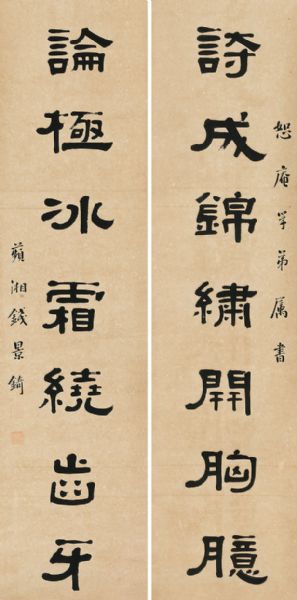 恕庵弟属書
詩成錦繡開胸臆
論極冰霜繞齒牙
蘋湘錢景錡